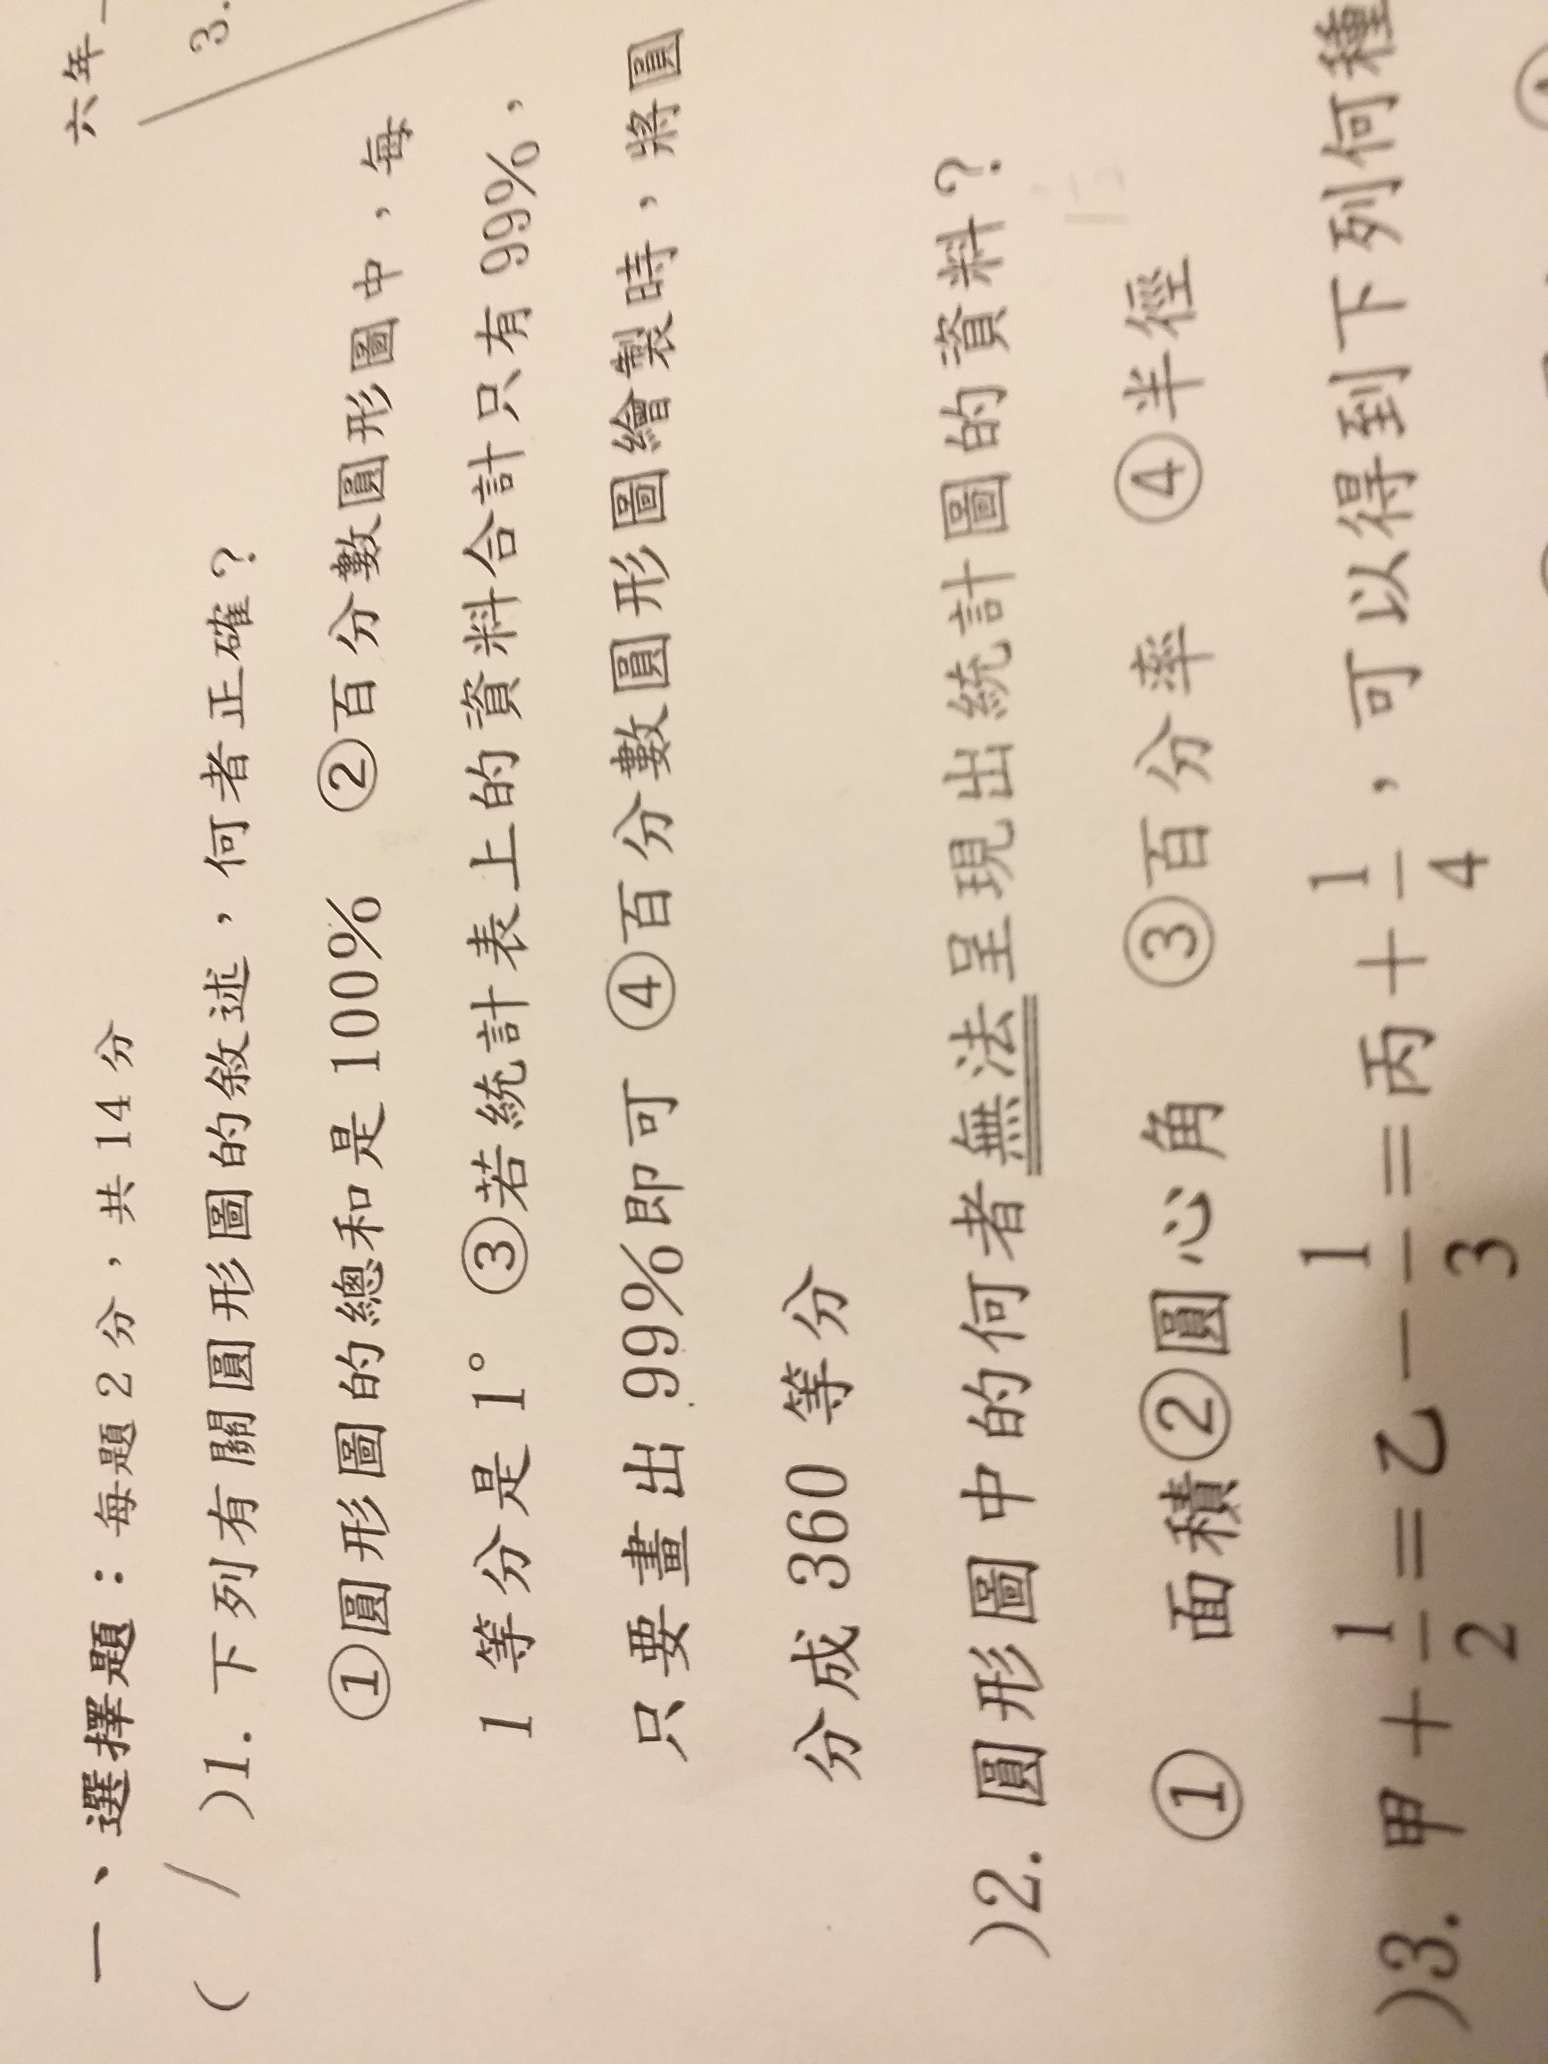 六年
3.
一、選擇題：每題2分，共14分
( / )1. 下列有關圓形圖的敘述，何者正確？
①圓形圖的總和是100% ②百分數圓形圖中，每
1 等分是1° ③若統計表上的資料合計只有99%，
只要畫出99%即可 ④百分數圓形圖繪製時，將圓
分成 360 等分
)2. 圓形圖中的何者無法呈現出統計圖的資料？
① 面積②圓心角 ③百分率 ④半徑
)3. 甲+1/2=乙-1/3=丙+1/4，可以得到下列何種